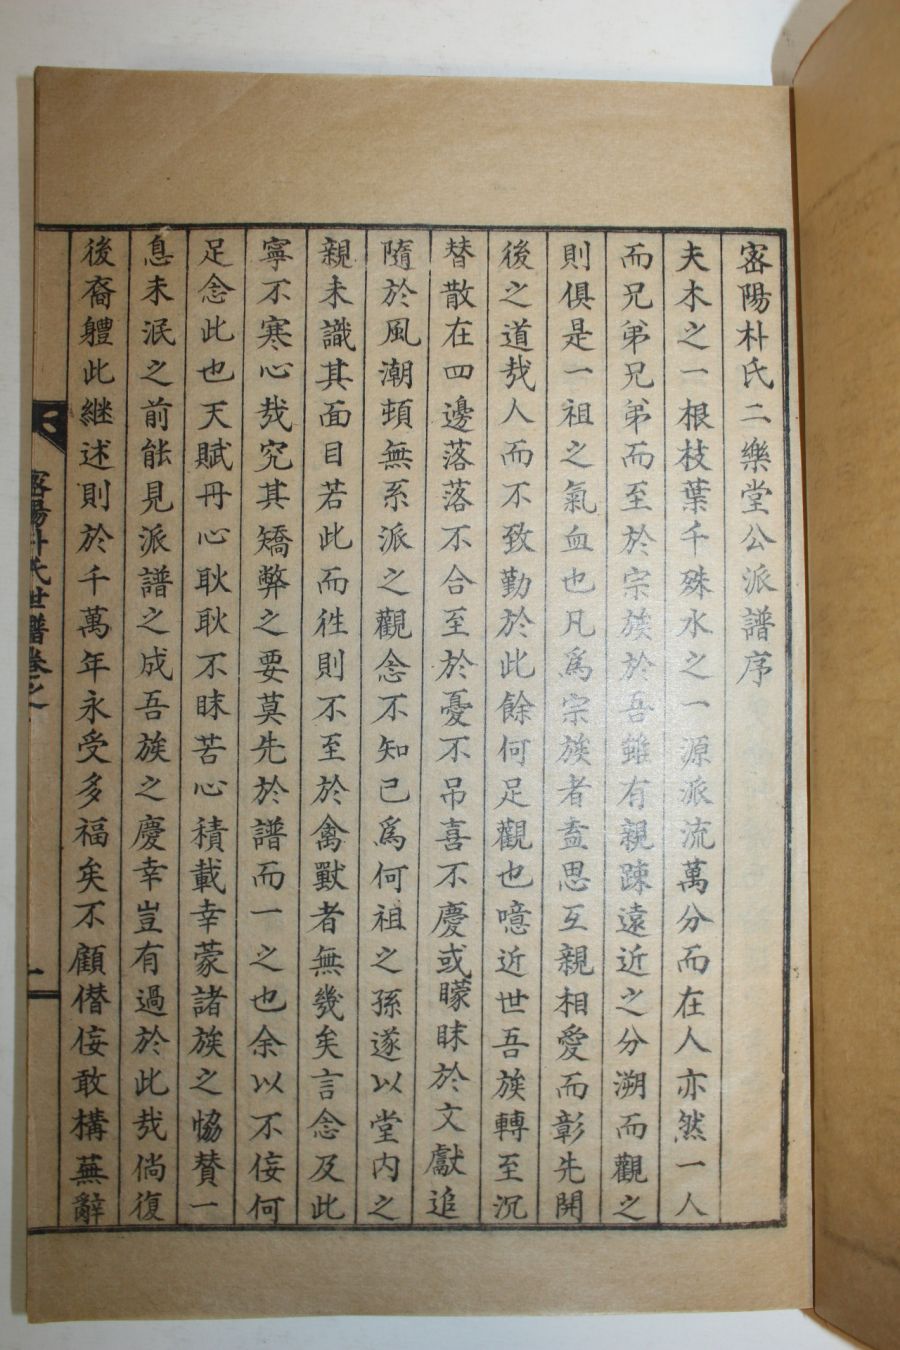 密陽朴氏二樂堂公派譜序
夫木之一根枝葉千殊水之一源派流萬分而在人亦然一人
而兄弟兄弟而至於宗族於吾雖有親踈遠近之分溯而觀之
則俱是一祖之氣血也凡爲宗族者盍思互親相愛而彰先開
後之道㢤人而不致勤於此餘何足觀也噫近世吾族轉至沉
替散在四邊落落不合至於憂不吊喜不慶或矇昧於文獻追
隨於風潮頓無系派之觀念不知己爲何祖之孫遂以堂內之
親未識其面目若此而徃則不至於禽獸者無幾矣言念及此
寧不寒心㢤究其矯弊之要莫先於譜而一之也余以不侫何
足念此也天賦丹心耿耿不昧苦心積載幸蒙諸族之恊賛一
息未泯之前能見派譜之成吾族之慶幸豈有過於此㢤倘復
後裔軆此継述則於千萬年永受多福矣不顧僭侫敢構蕪辭
密陽朴氏世譜卷之一